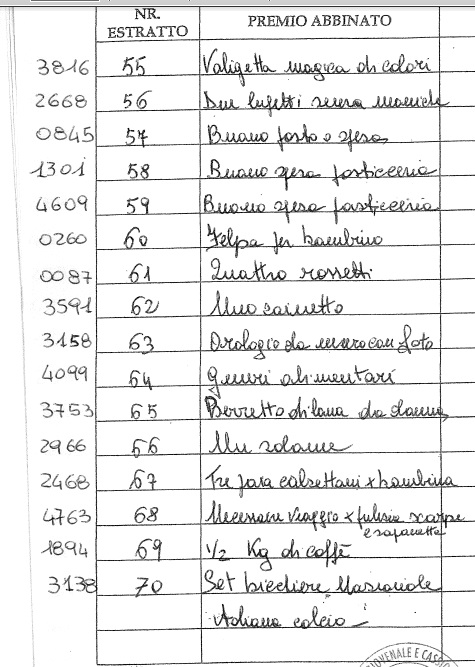 NR. ESTRATTO PREMIO ABBINATO
3816 55 Valigetta magica di colori
2668 56 Due lupetti senza maniche
0845 57 Buono pasto o spesa
1301 58 Buono spesa pasticceria
4609 59 Buono spesa pasticceria
0260 60 Felpa per bambino
0087 61 Quattro rossetti
3591 62 Uno zainetto
3158 63 Orologio da muro con foto
4099 64 Generi alimentari
3753 65 Berretto di lana da donna
2966 66 Un salame
2468 67 Tre paia calzettoni x bambina
4763 68 Necessaire viaggio x pulizia scarpe
e saponetta
1894 69 1/2 Kg di caffè
3138 70 Set bicchiere Nazionale
Italiana calcio
OVENALE E CASS